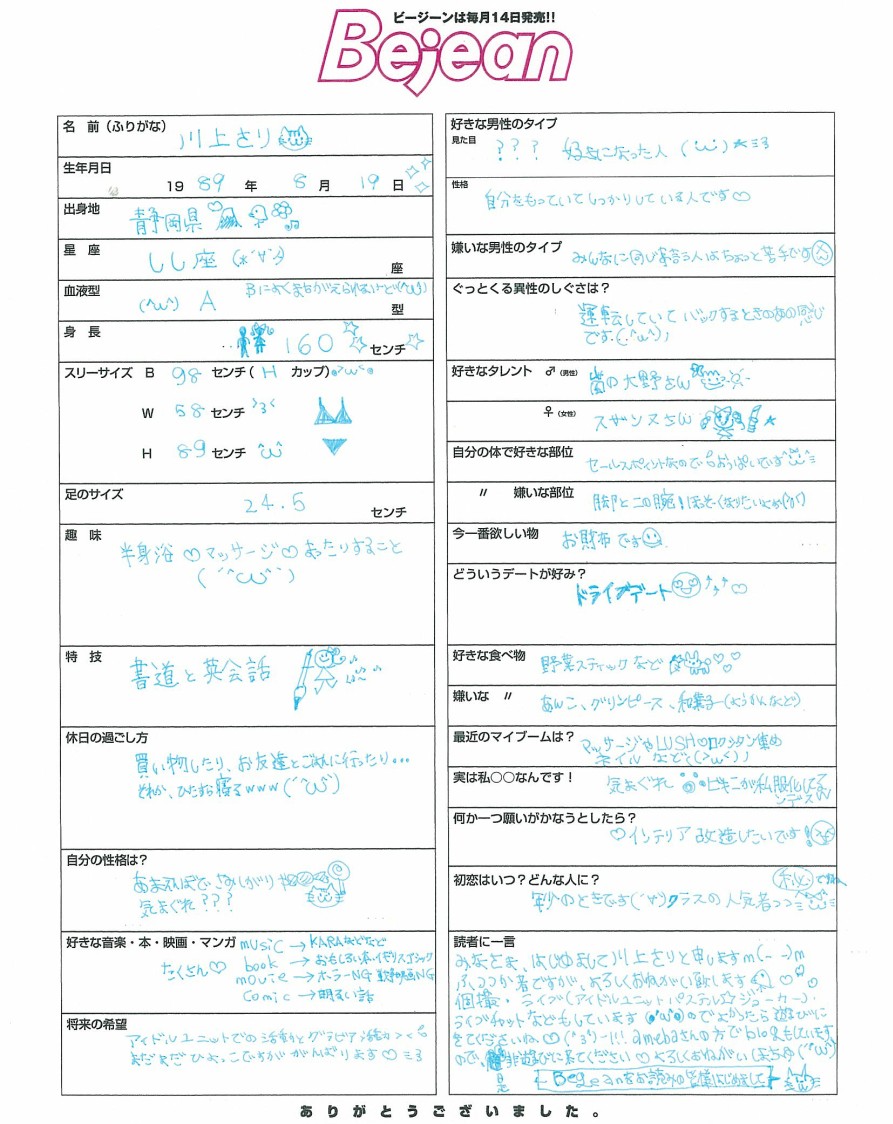 ビージーンは毎月14日発売!!
Bejean
名 前（ふりがな）
川上さり
生年月日
19 89 年 8 月 19 日
出身地
静岡県♡
星 座
しし座 座
血液型
A 型
Bによくまちがえられるけど
身 長
160 センチ
スリーサイズ B 98 センチ( H カップ)
W 58 センチ
H 89 センチ
足のサイズ
24.5 センチ
趣 味
半身浴♡マッサージ♡おったりすること
特 技
書道と英会話
休日の過ごし方
買い物したり、お友達とごはんに行ったり...
どれか、ひたすら寝るwww
自分の性格は？
あまえんぼでさみしがりや
気まぐれ???
好きな音楽・本・映画・マンガ
たくさん♡
music → KARAなどなど
book → おもしろい本・イギリスゴシック
movie → ホーラーNG 動物映画NG
comic → 明るい話
将来の希望
アイドルユニットでの活動とグラビア活動
まだまだひよっこですが がんばります♡
好きな男性のタイプ
見た目
??? 好きになった人
性格
自分をもっていてしっかりしている人です♡
嫌いな男性のタイプ
みんなに同じ事言う人はちょっと苦手です
ぐっとくる異性のしぐさは？
運転していてバックするときのあの感じ
です
好きなタレント ♂（男性）
嵐の大野さん
♀（女性）
スザンヌさん
自分の体で好きな部位
セールスポイントなのでおっぱいです
〃 嫌いな部位
脚と二の腕!ほそくなりたい
今一番欲しい物
お財布です
どういうデートが好み？
ドライブデート
好きな食べ物
野菜スティックなど
嫌いな 〃
あんこ、グリンピース、和菓子(ようかんなど)
最近のマイブームは？
マッサージやLUSH♡ロクシタン集め
ネイルなど
実は私○○なんです！
気まぐれ ビキニが私服化してる
ンデスw
何か一つ願いがかなうとしたら？
♡インテリア改造したいです!
初恋はいつ？どんな人に？
秘
クラスの人気者
読者に一言
みなさま、はじめまして川上さりと申しますm(_ _)m
ふつつか者ですが、よろしくおねがい致します
個撮・ライブ(アイドルユニットパステル☆ジョーカー)・
ライブチャットなどもしています のでよかったら遊びに
きてくださいね♡ amebaさんの方でblogもしています
ので、是非遊びに来てください♡よろしくおねがいしまちゅ
Bejeanをお読みの皆様はじめまして
ありがとうございました。